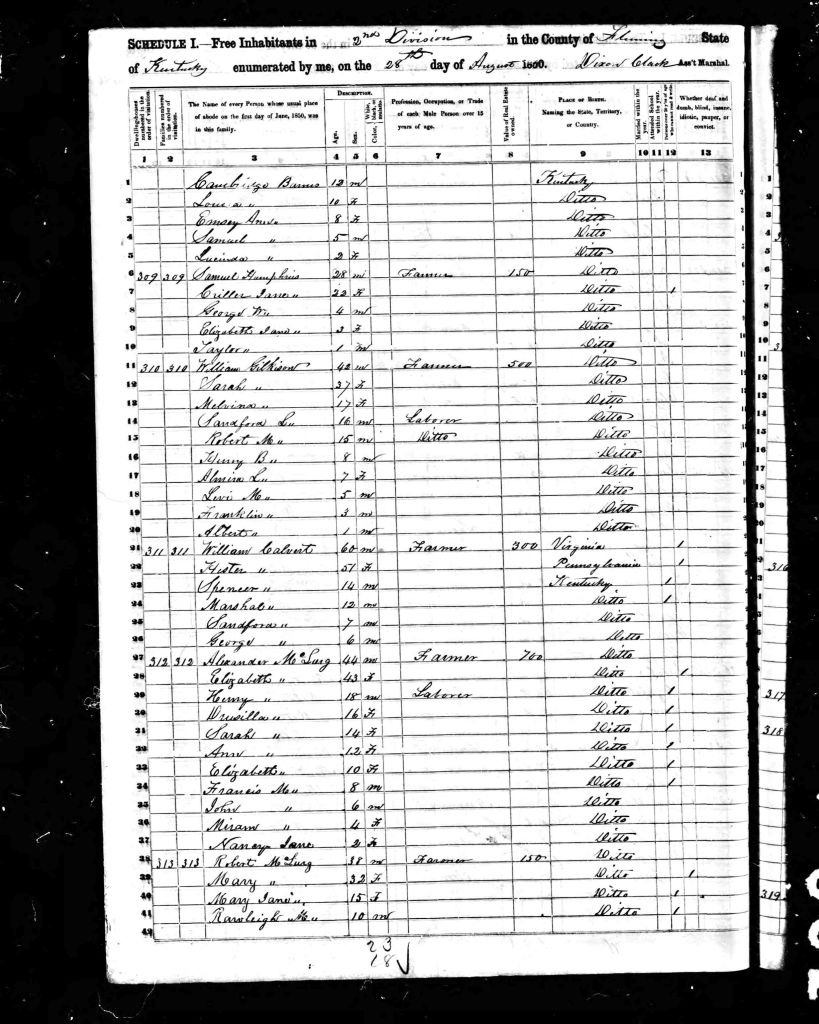 SCHEDULE I.—Free Inhabitants in 2nd Division in the County of Fleming State
of Kentucky enumerated by me, on the 28th day of August 1850. Dixon Clark Ass't Marshal.
Dwelling-houses numbered in the order of visitation. Families numbered in the order of visitation. The Name of every Person whose usual place of abode on the first day of June, 1850, was in this family. DESCRIPTION. Age. Sex. Color, White, black, or mulatto. Profession, Occupation, or Trade of each Male Person over 15 years of age. Value of Real Estate owned. PLACE OF BIRTH. Naming the State, Territory, or Country. Married within the year. Attended School within the year. Whether deaf and dumb, blind, insane, idiotic, pauper, or convict.
1 2 3 4 5 6 7 8 9 10 11 12 13
1 Cambridge Burns 12 m Kentucky
2 Louisa " 10 F Ditto
3 Emsey Ann " 8 F Ditto
4 Samuel " 5 m Ditto
5 Lucinda " 2 F Ditto
6 309 309 Samuel Humphris 28 m Farmer 150 Ditto
7 Criller Jane " 22 F Ditto 1
8 George W " 4 m Ditto
9 Elizabeth Jane " 3 F Ditto
10 Taylor " 1 m Ditto
11 310 310 William Gilkison 42 m Farmer 500 Ditto
12 Sarah " 37 F Ditto
13 Melvina " 17 F Ditto
14 Sandford L " 16 m Laborer Ditto
15 Robert M " 15 m Ditto Ditto
16 Henry B " 8 m Ditto
17 Almira L " 7 F Ditto
18 Levi M " 5 m Ditto
19 Franklin " 3 m Ditto
20 Albert " 1 m Ditto
21 311 311 William Calvert 60 m Farmer 300 Virginia 1
22 Hester " 51 F Pennsylvania 1
23 Spencer " 14 m Kentucky 1
24 Marshal " 12 m Ditto 1
25 Sandford " 7 m Ditto
26 George " 6 m Ditto
27 312 312 Alexander McLurg 44 m Farmer 700 Ditto
28 Elizabeth " 43 F Ditto 1
29 Henry " 18 m Laborer Ditto 1
30 Drusilla " 16 F Ditto 1
31 Sarah " 14 F Ditto 1
32 Ann " 12 F Ditto 1
33 Elizabeth " 10 F Ditto 1
34 Francis M " 8 m Ditto 1
35 John " 6 m Ditto
36 Miram " 4 F Ditto
37 Nancy Jane 2 F Ditto
38 313 313 Robert McLurg 38 m Farmer 150 Ditto
39 Mary " 32 F Ditto 1
40 Mary Jane " 15 F Ditto 1
41 Rawleigh M " 10 m Ditto 1
42
23
18
316
317
318
319